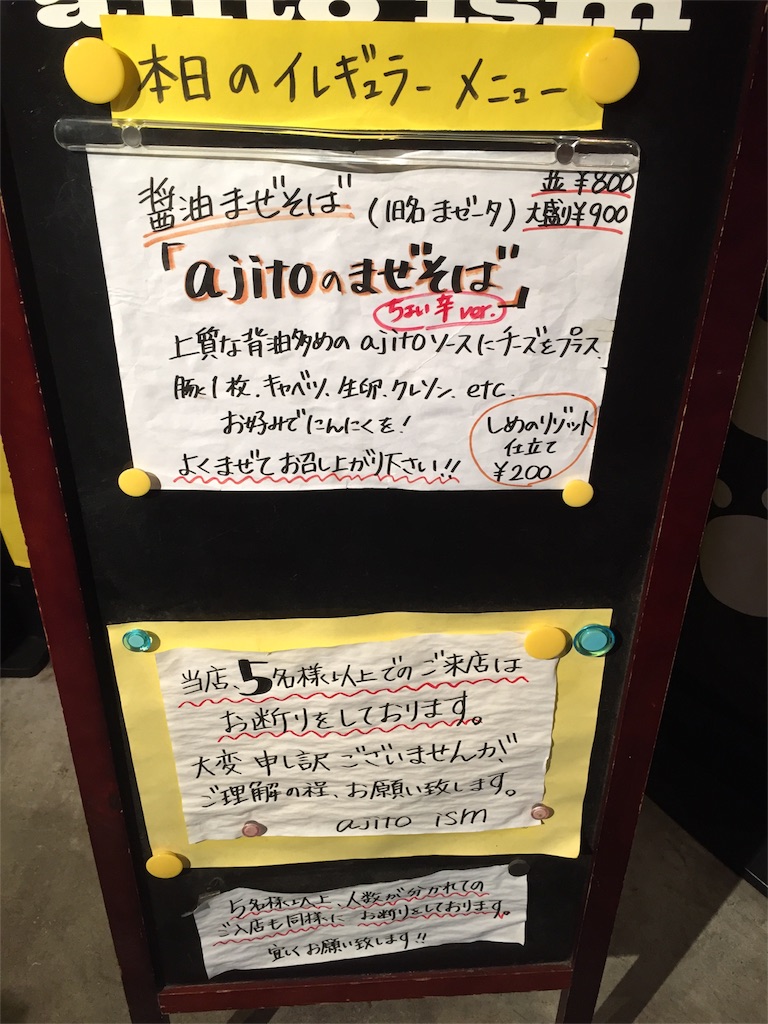 ajito ism
本日のイレギュラーメニュー
醤油まぜそば (旧名 まぜータ)
並 ¥800
大盛り¥900
「ajitoのまぜそば」
ちょい辛 ver.
上質な背油多めの ajitoソースにチーズをプラス
豚1枚.キャベツ.生卵.クレソン.etc.
お好みでにんにくを!
よくまぜてお召し上がり下さい!!
しめのリゾット
仕立て
¥200
当店、5名様以上でのご来店は
お断りをしております。
大変申し訳ございませんが、
ご理解の程、お願い致します。
ajito ism
5名様以上、人数が分かれての
ご入店も同様に お断りをしております。
宜しくお願い致します!!